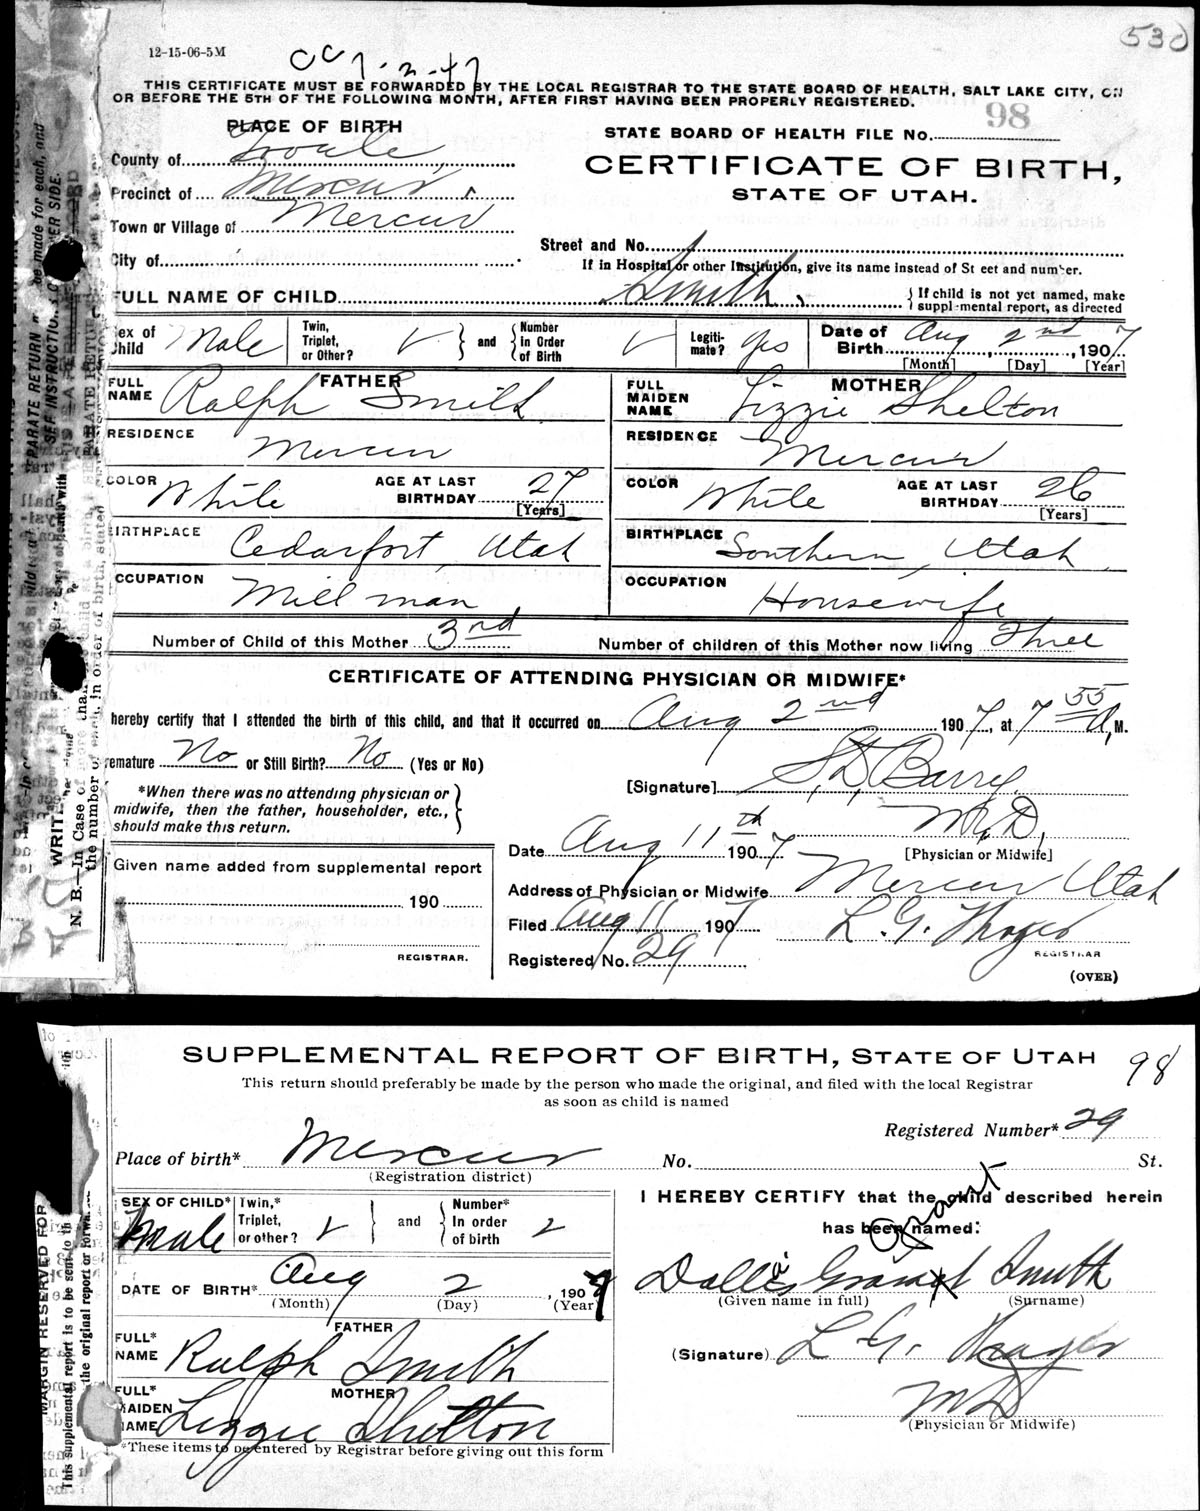 530
12-15-06-5M
THIS CERTIFICATE MUST BE FORWARDED BY THE LOCAL REGISTRAR TO THE STATE BOARD OF HEALTH, SALT LAKE CITY, ON
OR BEFORE THE 5TH OF THE FOLLOWING MONTH, AFTER FIRST HAVING BEEN PROPERLY REGISTERED.
PLACE OF BIRTH
STATE BOARD OF HEALTH FILE No. 98
County of Tooele,
CERTIFICATE OF BIRTH,
Precinct of Mercur,
STATE OF UTAH.
Town or Village of Mercur
Street and No.
City of
If in Hospital or other Institution, give its name instead of St eet and number.
FULL NAME OF CHILD Smith. { If child is not yet named, make
suppl-mental report, as directed
Sex of Child Male Twin, Triplet, or Other? } and { Number in Order of Birth Legiti-mate? yes Date of Birth Aug, 2nd, 1907
[Month] [Day] [Year]
FATHER
FULL NAME Ralph Smith
RESIDENCE Mercur
COLOR White AGE AT LAST BIRTHDAY 27
[Years]
BIRTHPLACE Cedarfort, Utah
OCCUPATION Mill man
MOTHER
FULL MAIDEN NAME Lizzie Shelton
RESIDENCE Mercur
COLOR White AGE AT LAST BIRTHDAY 26
[Years]
BIRTHPLACE Southern, Utah
OCCUPATION Housewife
Number of Child of this Mother 3rd Number of children of this Mother now living Three
CERTIFICATE OF ATTENDING PHYSICIAN OR MIDWIFE*
hereby certify that I attended the birth of this child, and that it occurred on Aug 2nd 1907, at 7 55 A, M.
remature No or Still Birth? No (Yes or No)
*When there was no attending physician or
midwife, then the father, householder, etc.,
should make this return.
[Signature] S, D, Barry
M, D,
[Physician or Midwife]
Date Aug 11th 1907
Address of Physician or Midwife Mercur Utah
Filed Aug 11 1907
REGISTRAR
Registered No. 29
(OVER)
Given name added from supplemental report
190
REGISTRAR.
SUPPLEMENTAL REPORT OF BIRTH, STATE OF UTAH 98
This return should preferably be made by the person who made the original, and filed with the local Registrar
as soon as child is named
Registered Number* 29
Place of birth* Mercur No. St.
(Registration district)
SEX OF CHILD* Male Twin,* Triplet, or other? } and { Number* In order of birth 2
DATE OF BIRTH* Aug 2, 1907
(Month) (Day) (Year)
FATHER
FULL* NAME Ralph Smith
MOTHER
FULL* MAIDEN NAME Lizzie Shelton
*These items to be entered by Registrar before giving out this form
I HEREBY CERTIFY that the child described herein
has been named:
Grant
Smith
(Given name in full) (Surname)
(Signature) L G.
MD
(Physician or Midwife)